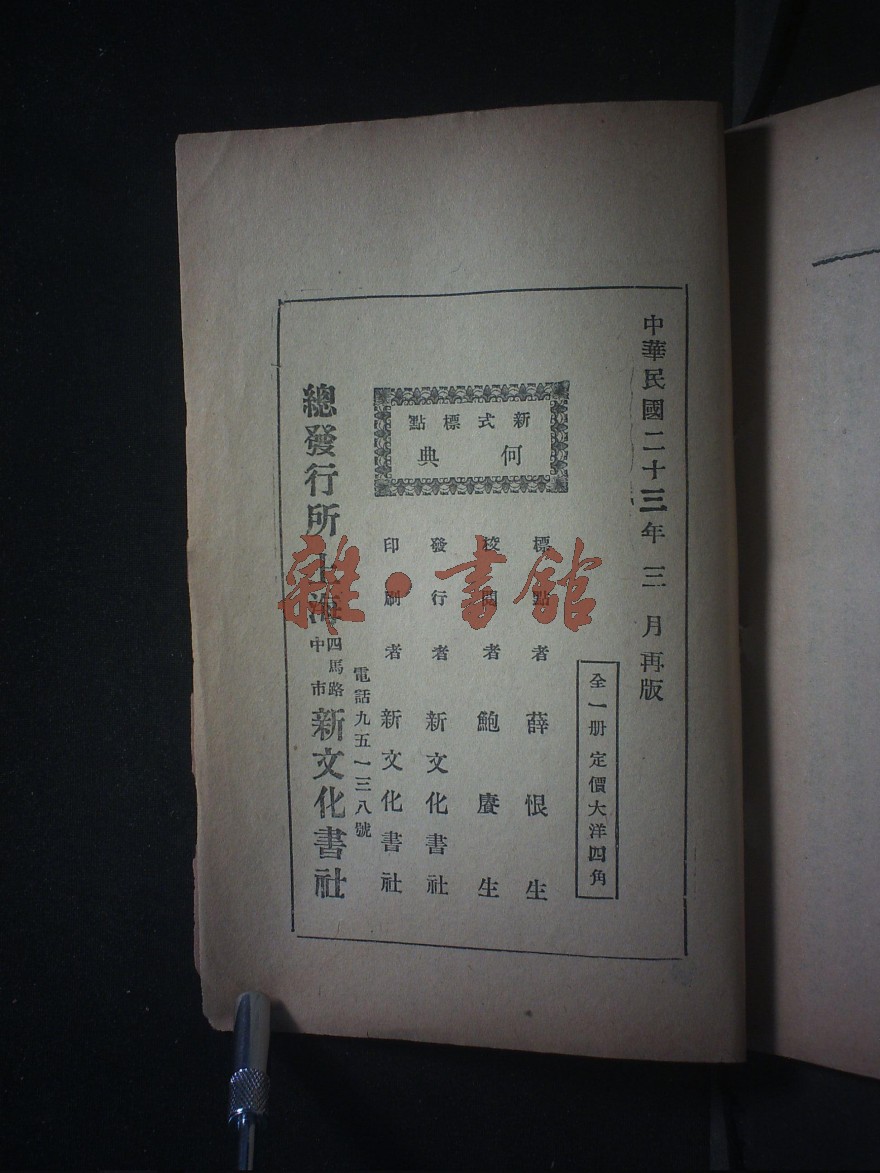 中華民國二十三年三月再版
全一册定價大洋四角
新式標點
何典
標點者薛恨生
校閱者鮑賡生
發行者新文化書社
印刷者新文化書社
總發行所上海四馬路中市新文化書社
電話九五一三八號
雜·書館